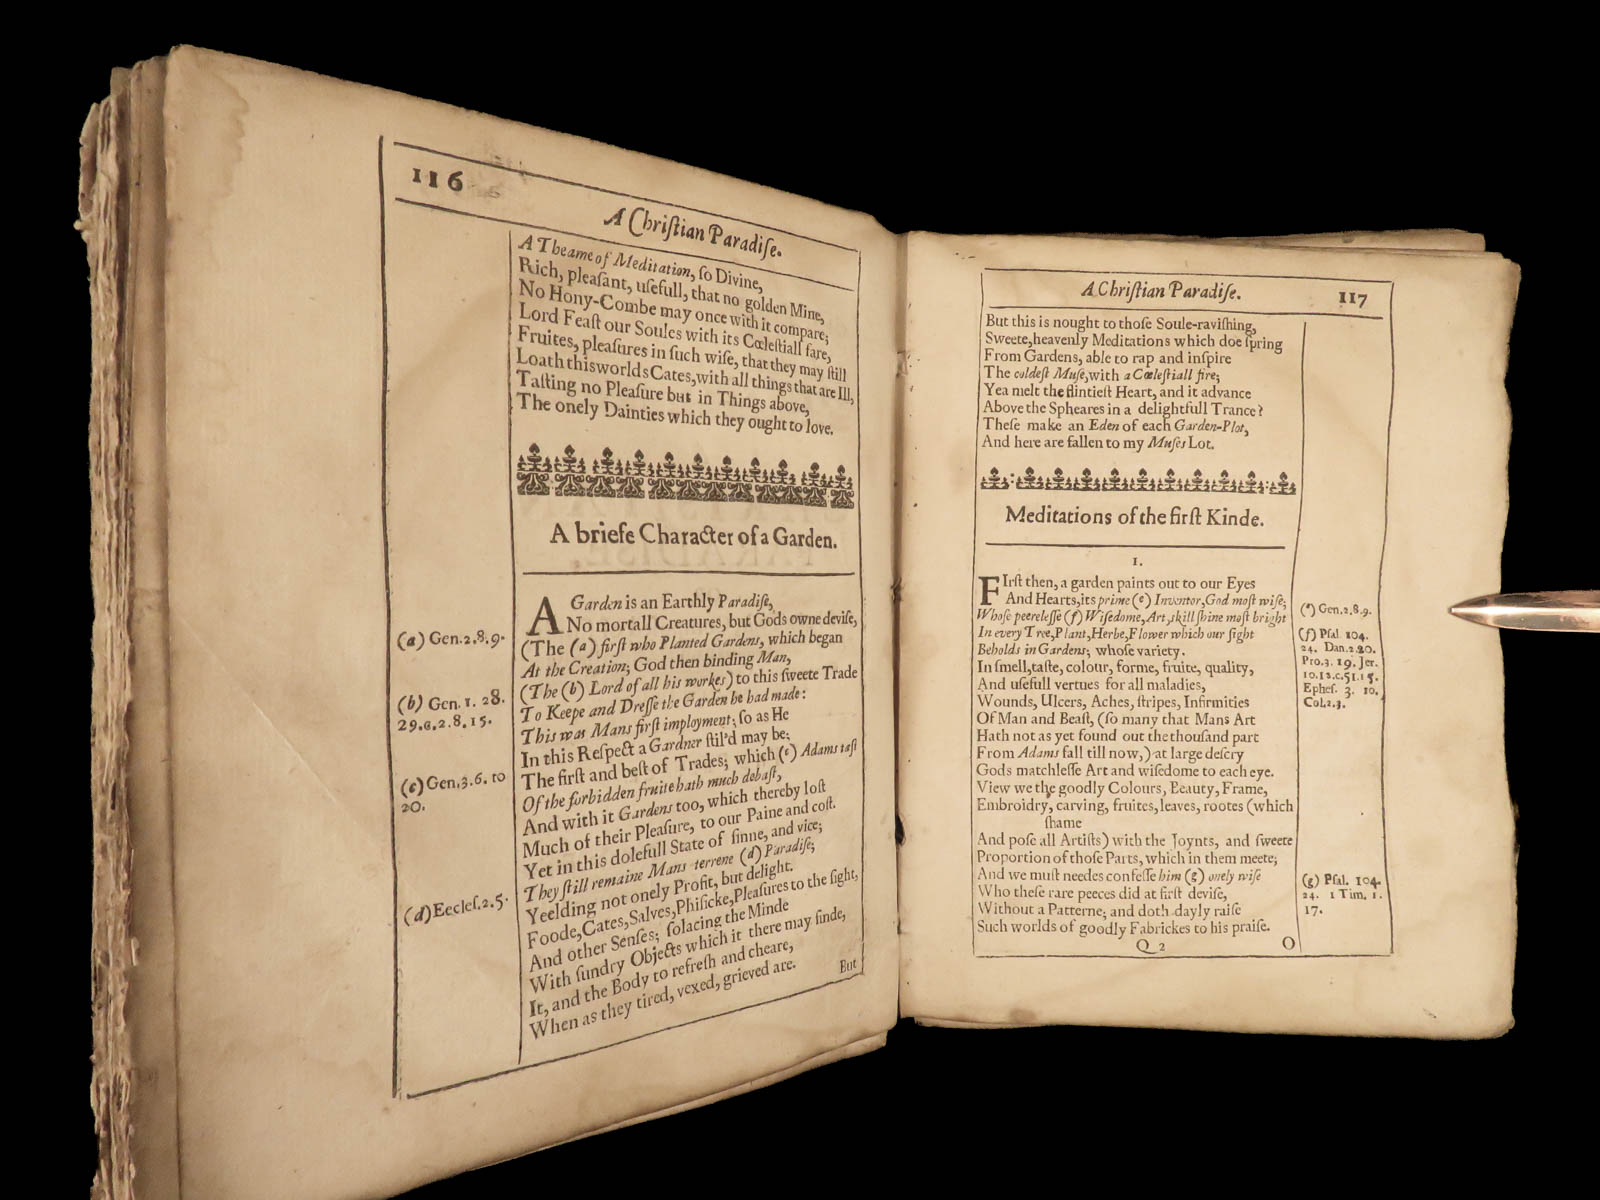 116
A Chriſtian Paradiſe.
A Theame of Meditation, ſo Divine,
Rich, pleaſant, uſefull, that no golden Mine,
No Hony-Combe may once with it compare;
Lord Feaſt our Soules with its Cœleſtiall fare,
Fruites, pleaſures in ſuch wiſe, that they may ſtill
Loath this worlds Cates, with all things that are Ill,
Taſting no Pleaſure but in Things above,
The onely Dainties which they ought to love.
A briefe Character of a Garden.
A Garden is an Earthly Paradiſe,
No mortall Creatures, but Gods owne deviſe,
(The (a) firſt who Planted Gardens, which began
At the Creation; God then binding Man,
(The (b) Lord of all his workes) to this ſweete Trade
To Keepe and Dreſſe the Garden he had made:
This was Mans firſt imployment; ſo as He
In this Reſpect a Gardner ſtil'd may be:
The firſt and beſt of Trades; which (c) Adams taſt
Of the forbidden fruite hath much debaſt,
And with it Gardens too, which thereby loſt
Much of their Pleaſure, to our Paine and coſt.
Yet in this dolefull State of ſinne, and vice;
They ſtill remaine Mans terrene (d) Paradiſe;
Yeelding not onely Profit, but delight.
Foode, Cates, Salves, Phiſicke, Pleaſures to the ſight,
And other Senſes; ſolacing the Minde
With ſundry Objects which it there may finde,
It, and the Body to refreſh and cheare,
When as they tired, vexed, grieved are.
But
(a) Gen.2.8.9.
(b) Gen. 1. 28.
29.c.2.8.15.
(c) Gen.3.6. to
20.
(d) Eccleſ.2.5.
A Chriſtian Paradiſe.
117
But this is nought to thoſe Soule-raviſhing,
Sweete, heavenly Meditations which doe ſpring
From Gardens, able to rap and inſpire
The coldeſt Muſe, with a Cœleſtiall fire;
Yea melt the flintieſt Heart, and it advance
Above the Spheares in a delightfull Trance?
Theſe make an Eden of each Garden-Plot,
And here are fallen to my Muſes Lot.
Meditations of the firſt Kinde.
1.
FIrſt then, a garden paints out to our Eyes
And Hearts, its prime (e) Inventor, God moſt wiſe;
Whoſe peereleſſe (f) Wiſedome, Art, skill ſhine moſt bright
In every Tree, Plant, Herbe, Flower which our ſight
Beholds in Gardens; whoſe variety.
In ſmell, taſte, colour, forme, fruite, quality,
And uſefull vertues for all maladies,
Wounds, Ulcers, Aches, ſtripes, Infirmities
Of Man and Beaſt, (ſo many that Mans Art
Hath not as yet found out the thouſand part
From Adams fall till now,) at large deſcry
Gods matchleſſe Art and wiſedome to each eye.
View we the goodly Colours, Beauty, Frame,
Embroidry, carving, fruites, leaves, rootes (which
ſhame
And poſe all Artiſts) with the Joynts, and ſweete
Proportion of thoſe Parts, which in them meete;
And we muſt needes confeſſe him (g) onely wiſe
Who theſe rare peeces did at firſt deviſe,
Without a Patterne; and doth dayly raiſe
Such worlds of goodly Fabrickes to his praiſe.
Q 2
O
(e) Gen.2.8.9.
(f) Pſal. 104.
24. Dan.2.20.
Pro.3. 19. Jer.
10.12.c.51.15.
Epheſ. 3. 10.
Col.2.3.
(g) Pſal. 104.
24. 1 Tim. 1.
17.